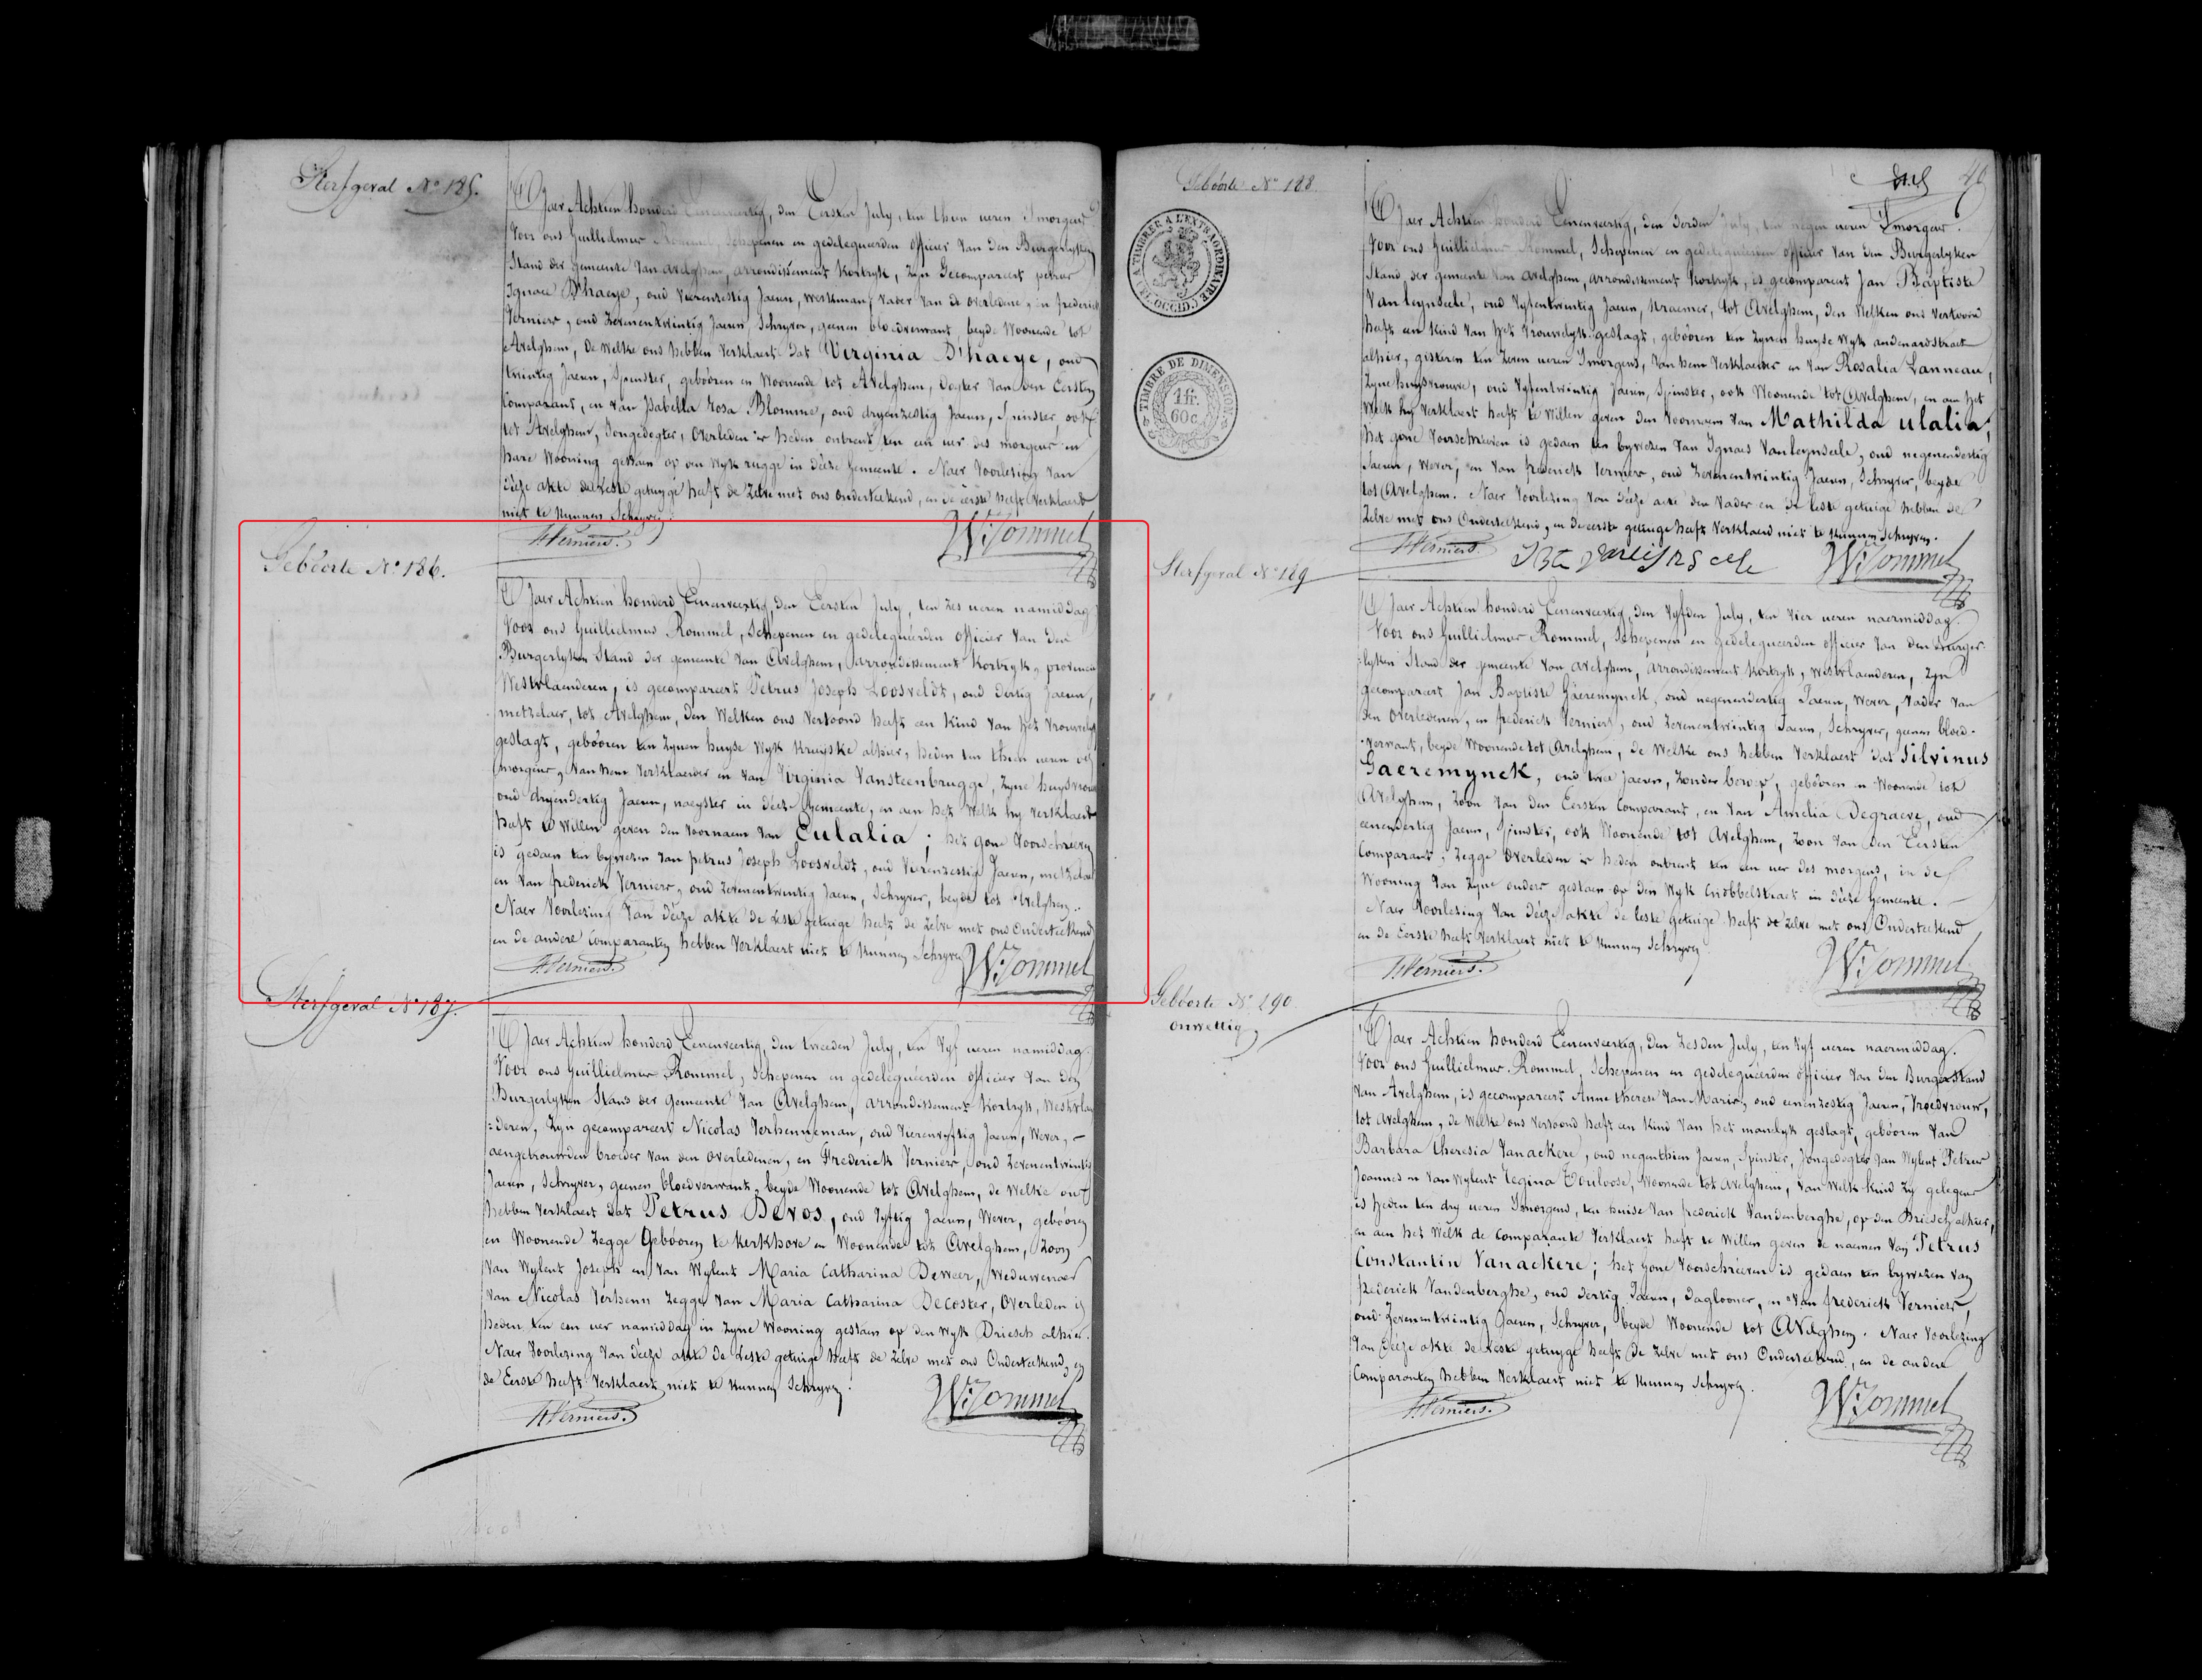 Sterfgeval N° 185.
T Jaer Achtien honderd Eenenveertig, den Eersten July, ten thien ueren Smorgens
Voor ons Guillielmus Rommel, Schepenen en gedelegueerden officier Van den Burgerlyken
Stand der Gemeente Van avelghem, arrondissement Kortryk, Zyn Gecompareert petrus
Ignace D'haeye, oud Vierenzestig Jaeren, Werkman, Vader Van de overledene, en frederick
Verniers, oud Zevenentwintig Jaeren, Schryver, geenen bloedverwant, beyde Woonende tot
Avelghem, de Welke ons hebben Verklaert dat Virginia D'haeye, oud
twintig Jaeren, Spinster, gebóoren en Woonende tot Avelghem, dogter Van den Eersten
Comparant, en Van Isabella Rosa Blomme, oud dryenzestig Jaeren, Spinster, ook
tot Avelghem, Jongedogter, Overleden is heden ontrent ten een uer des morgens in
hare Wooning gestaen op den Wyk rugge in dèeze Gemeente. Naer Voorlezing Van
dèeze akte de Leste getuyge heeft de Zelve met ons onderteekend, en de eerste heeft Verklaert
niet te kunnen Schryven.
F. Verniers. W. Rommel
Gebóorte N° 186.
T Jaer Achtien honderd Eenenveertig, den Eersten July, ten zes ueren namiddag
Voor ons Guillielmus Rommel, Schepenen en gedelegueerden officier Van den
Burgerlyken Stand der gemeente Van Avelghem, arrondissement Kortryk, provincie
Westvlaenderen, is gecompareert Petrus Joseph Loosveldt, oud dertig Jaeren,
metzelaer, tot Avelghem, den Welken ons Vertoond heeft een Kind Van het Vrouwelyk
geslagt, gebóoren ten Zynen huyse Wyk Kruyske alhier, heden ten thien ueren des
morgens, Van hem Verklaerder en Van Virginia Vansteenbrugge, Zyne huysvrouw
oud dryendertig Jaeren, naeyster in dèeze Gemeente, en aen het Welk hy Verklaert
heeft te Willen geven den Voornaem Van Eulalia; het gone Voorschreeven
is gedaen ten bywezen Van petrus Joseph Loosveldt, oud Vierenzestig Jaeren, metzelaer
en Van frederick Verniers, oud Zevenentwintig Jaeren, Schryver, beyde tot Avelghem.
Naer Voorlezing Van dèeze akte de Leste getuige heeft de Zelve met ons Onderteekend
en de andere Comparanten hebben Verklaert niet te kunnen Schryven
F. Verniers. W. Rommel
Sterfgeval N° 187.
T Jaer Achtien honderd Eenenveertig, den tweeden July, ten Vyf ueren namiddag.
Voor ons Guillielmus Rommel, Schepenen en gedelegueerden officier Van den
Burgerlyken Stand der Gemeente Van Avelghem, arrondissement Kortryk, Westvlaen
=deren, Zyn gecompareert Nicolas Verhenneman, oud Vierenvyftig Jaeren, Wever, -
aengetrouwden broeder Van den overledenen, en Frederick Verniers, oud Zevenentwintig
Jaeren, Schryver, geenen bloedverwant, beyde Woonende tot Avelghem, de Welke ons
hebben Verklaert dat Petrus Devos, oud Vyftig Jaeren, Wever, gebóoren
en Woonende Zegge Gebóoren te Kerkhove en Woonende tot Avelghem, Zoon
Van Wylent Joseph en Van Wylent Maria Catharina Deweer, Weduwenaer
Van Nicolas Verhenn Zegge Van Maria Catharina Decoster, Overleden is
heden ten een uer namiddag in Zyne Wooning gestaen op den Wyk Driesch alhier.
Naer Voorlezing Van dèeze akte de Leste getuige heeft de Zelve met ons Onderteekend, en
de Eerste heeft Verklaert niet te kunnen Schryven.
F. Verniers. W. Rommel
40
Gebóorte N° 188.
A TIMBRER A L'EXTRAORDINAIRE
TIMBRE DE DIMENSION
1 fr. 60 c.
T Jaer Achtien honderd Eenenveertig, den derden July, ten negen ueren Smorgens.
Voor ons Guillielmus Rommel, Schepenen en gedelegueerden officier Van den Burgerlyken
Stand der gemeente Van Avelghem, arrondissement Kortryk, is gecompareert Jan Baptiste
Vanleynseele, oud Vyfentwintig Jaeren, Kraemer, tot Avelghem, den Welken ons Vertoond
heeft een kind Van het Vrouwelyk geslagt, gebóoren ten Zynen huyse Wyk audenaerdstraet
alhier, gisteren ten Zeven ueren Smorgens, Van hem Verklaerder en Van Rosalia Lanneau,
Zyne huysvrouwe, oud Vyfentwintig Jaeren, Spinster, ook Woonende tot Avelghem, en aen het
Welk hy Verklaert heeft te Willen geven den Voornaem Van Mathilda ulalia;
het gone Voorschreeven is gedaen ten bywezen Van Ignaes Vanleynseele, oud negenendertig
Jaeren, Wever, en Van frederick Verniers, oud Zevenentwintig Jaeren, Schryver, beyde
tot Avelghem. Naer Voorlezing Van dèeze acte den Vader en de leste getuige hebben de
Zelve met ons Onderteekend, en de eerste getuige heeft Verklaerd niet te kunnen Schryven.
F. Verniers. W. Rommel
Sterfgeval N° 189
T Jaer Achtien honderd Eenenveertig, den Vyfden July, ten Vier ueren naermiddag.
Voor ons Guillielmus Rommel, Schepenen en gedelegueerden officier Van den burger-
lyken Stand der gemeente Van avelghem, arrondissement Kortryk, Westvlaenderen, Zyn
gecompareert Jan Baptiste Gaeremynck, oud negenendertig Jaeren, Wever, Vader Van
den Overledenen, en frederick Verniers, oud Zevenentwintig Jaeren, Schryver, geenen bloed-
-verwant, beyde Woonende tot Avelghem, de Welke ons hebben Verklaert dat Silvinus
Gaeremynck, oud twee Jaeren, Zonder beroep, gebóoren en Woonende tot
Avelghem, Zoon Van den Eersten Comparant, en Van Amelia Degraeve, oud
eenendertig Jaeren, Spinster, ook Woonende tot Avelghem, Zoon Van den Eersten
Comparant, Zegge Overleden is heden ontrent ten een uer des morgens, in de
Wooning Van Zyne ouders gestaen op den Wyk Cnobbelstraet in dèeze Gemeente.
Naer Voorlezing Van dèeze akte de leste getuige heeft de Zelve met ons Onderteekend
en de Eerste heeft Verklaert niet te kunnen Schryven
F. Verniers. W. Rommel
Gebóorte N° 190.
onwettig
T Jaer Achtien honderd Eenenveertig, den Zesden July, ten Vyf ueren naermiddag.
Voor ons Guillielmus Rommel, Schepenen en gedelegueerden officier Van den Burgerstand
Van Avelghem, is gecompareert Anne therese Van Marie, oud eenenzestig Jaeren, Vroedvrouw,
tot avelghem, de Welke ons Vertoond heeft een Kind Van het manelyk geslagt, gebóoren Van
Barbara theresia Vanackere, oud negenthien Jaeren, Spinster, Jongedogter Van Wylent Petrus
Joannes en Van Wylent Regina Toulouse, Woonende tot avelghem, Van Welk kind Zy gelegen
is heden ten dry ueren Smorgens, ten huise Van frederick Vandenberghe, op den Driesch alhier,
en aen het Welk de Comparante Verklaert heeft te Willen geven de naemen Van Petrus
Constantin Vanackere; het gone Voorschreeven is gedaen ten bywezen Van
frederick Vandenberghe, oud dertig Jaeren, daglooner, en Van frederick Verniers,
oud Zevenentwintig Jaeren, Schryver, beyde Woonende tot Avelghem. Naer Voorlezing
Van dèeze akte de Leste getuyge heeft de Zelve met ons Onderteekend, en de andere
Comparanten hebben Verklaert niet te kunnen Schryven.
F. Verniers. W. Rommel